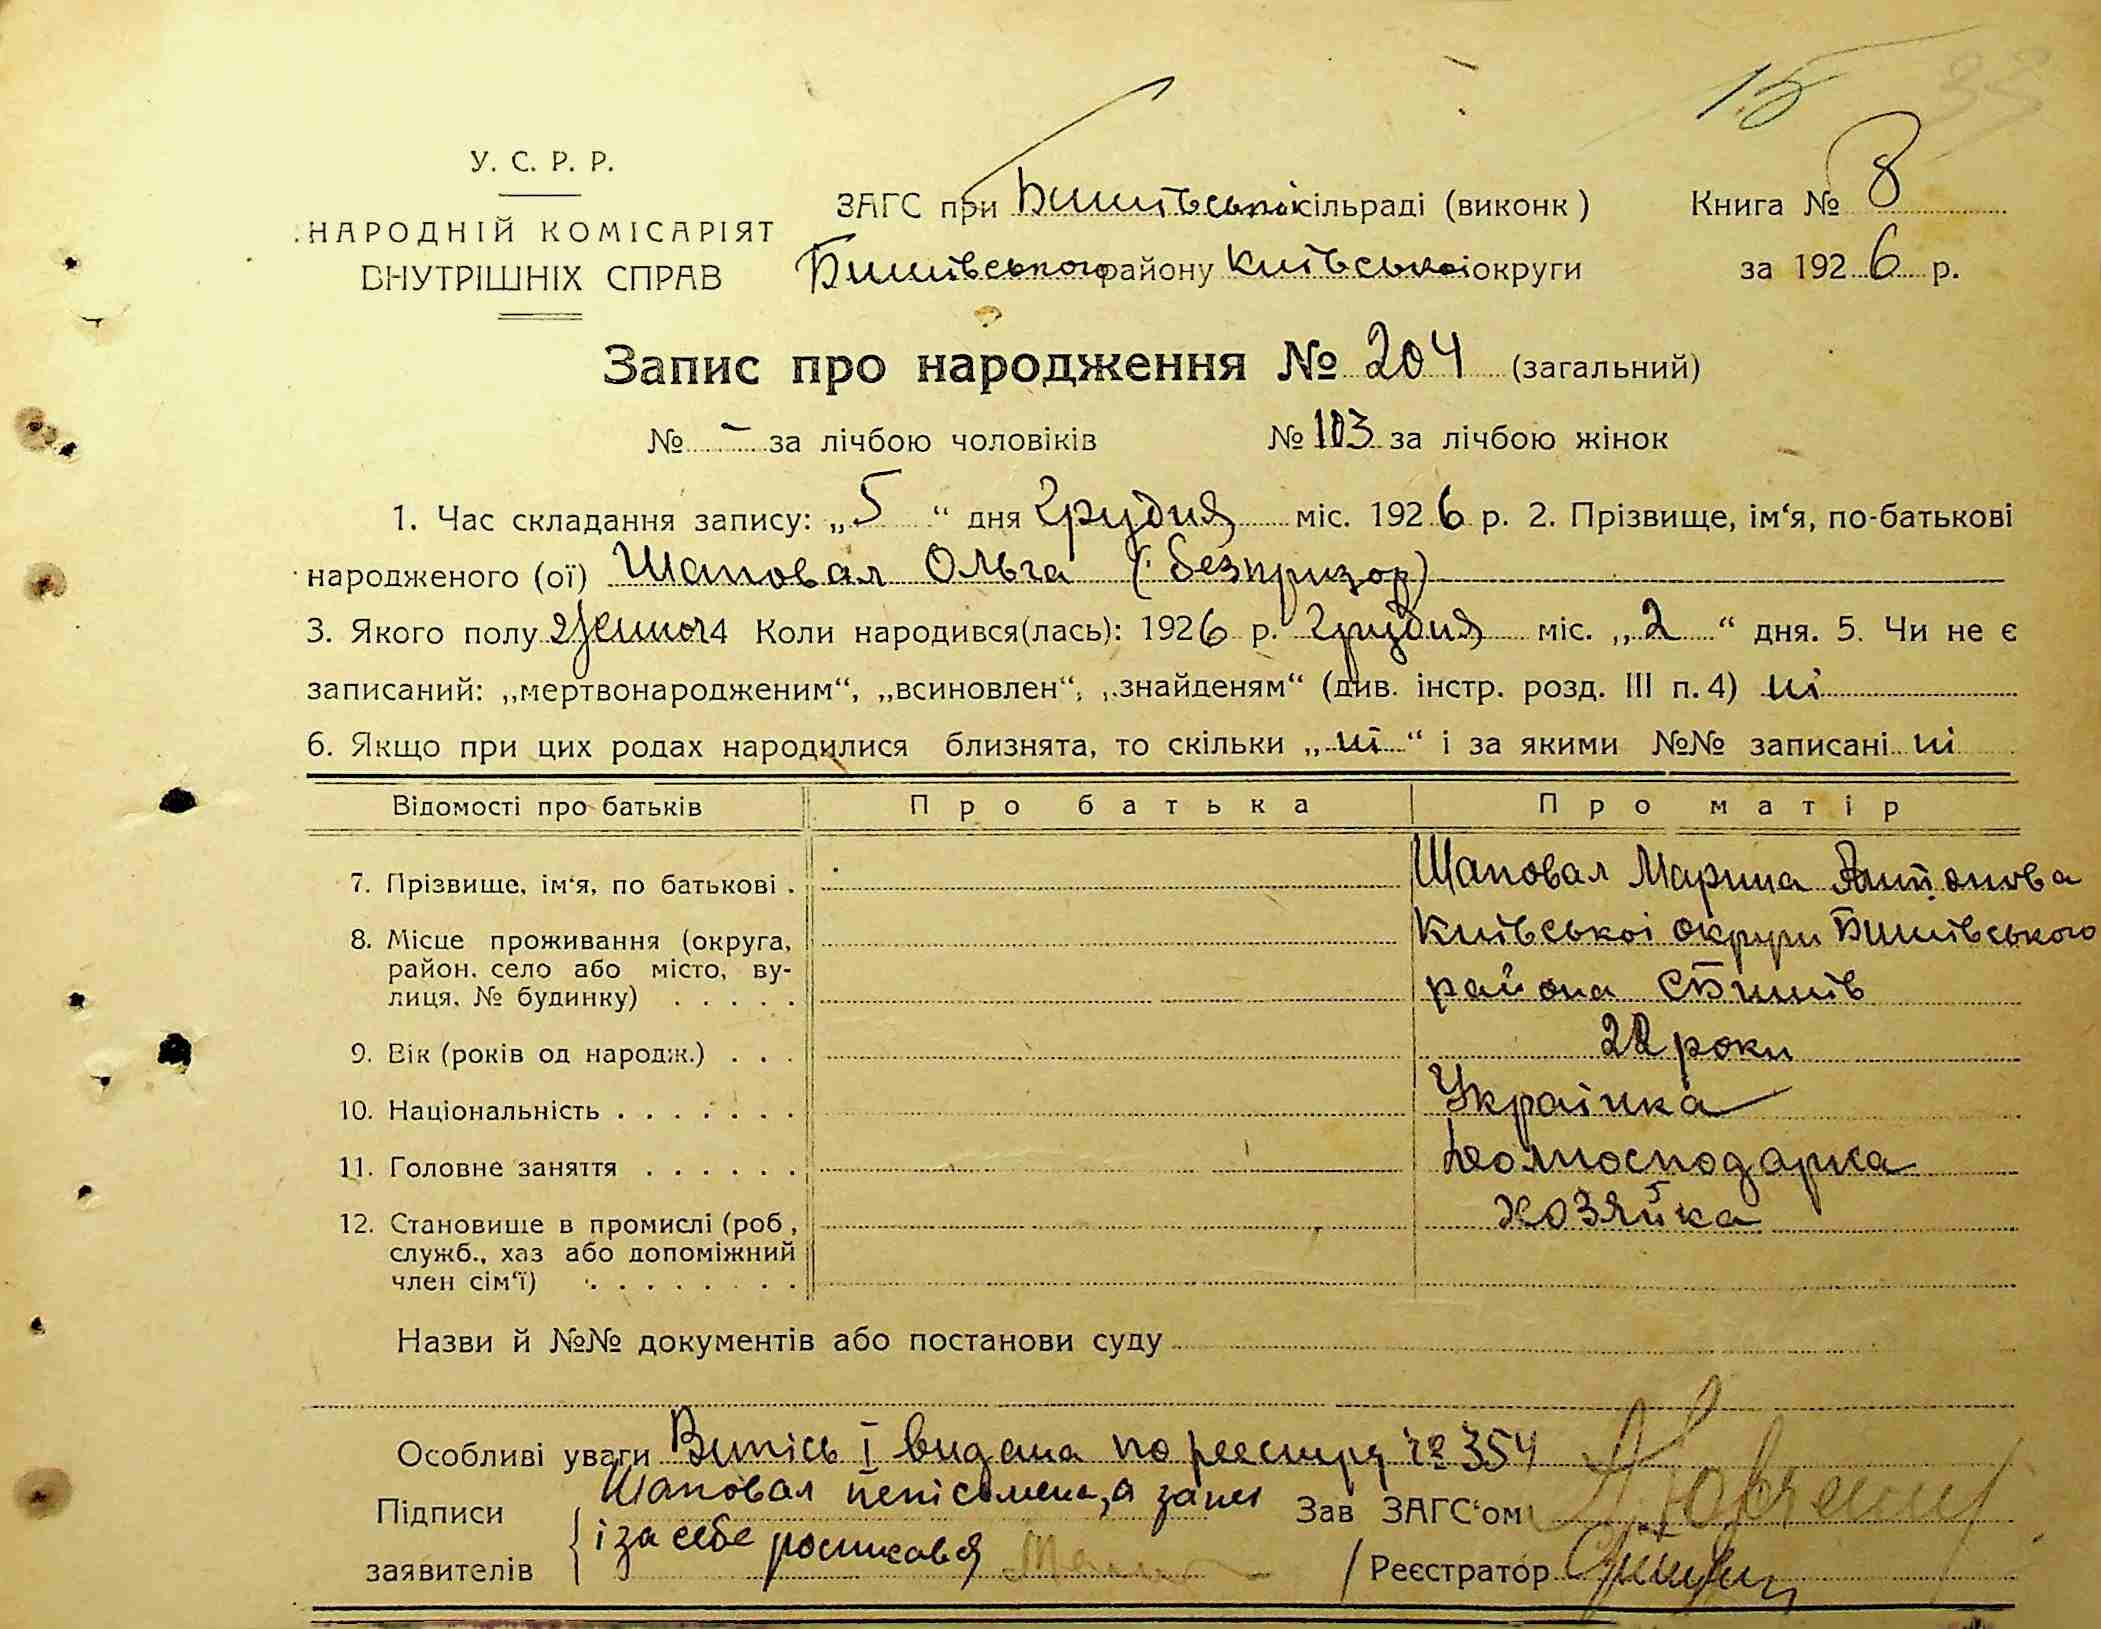 15 38
У. С. Р. Р.
НАРОДНІЙ КОМІСАРІЯТ
ВНУТРІШНІХ СПРАВ
ЗАГС при Бишівській сільраді (виконк)
Бишівського району Київської округи
Книга № 8
за 1926 р.
Запис про народження № 204 (загальний)
№ - за лічбою чоловіків № 103 за лічбою жінок
1. Час складання запису: „5“ дня Грудня міс. 1926 р. 2. Прізвище, ім‘я, по-батькові
народженого (ої) Шаповал Ольга (безпризор)
3. Якого полу жіноч 4 Коли народився(лась): 1926 р. Грудня міс. „2“ дня. 5. Чи не є
записаний: „мертвонародженим“, „всиновлен“, „знайденям“ (див. інстр. розд. III п. 4) ні
6. Якщо при цих родах народилися близнята, то скільки „ні“ і за якими №№ записані ні
Відомості про батьків Про батька Про матір
7. Прізвище, ім‘я, по батькові . Шаповал Марина Антонова
8. Місце проживання (округа, Київськоі округи Бишівського
район, село або місто, ву- района с Бишів
лиця, № будинку) . . . . .
9. Вік (років од народж.) . . . 22 роки
10. Національність . . . . . . . Українка
11. Головне заняття . . . . . .
12. Становище в промислі (роб, хозяйка
служб., хаз або допоміжний
член сім‘ї) . . . . . . . .
Назви й №№ документів або постанови суду
Особливі уваги Випісь I видана по реестру № 354
Підписи Шаповал непісьмена, а за неі Зав ЗАГС‘ом
заявителів і за себе росписався Реєстратор